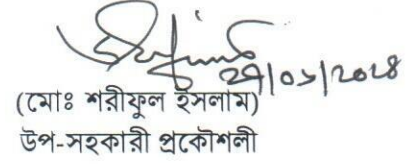 ২৭/০১/২০২৪
(মোঃ শরীফুল ইসলাম)
উপ-সহকারী প্রকৌশলী